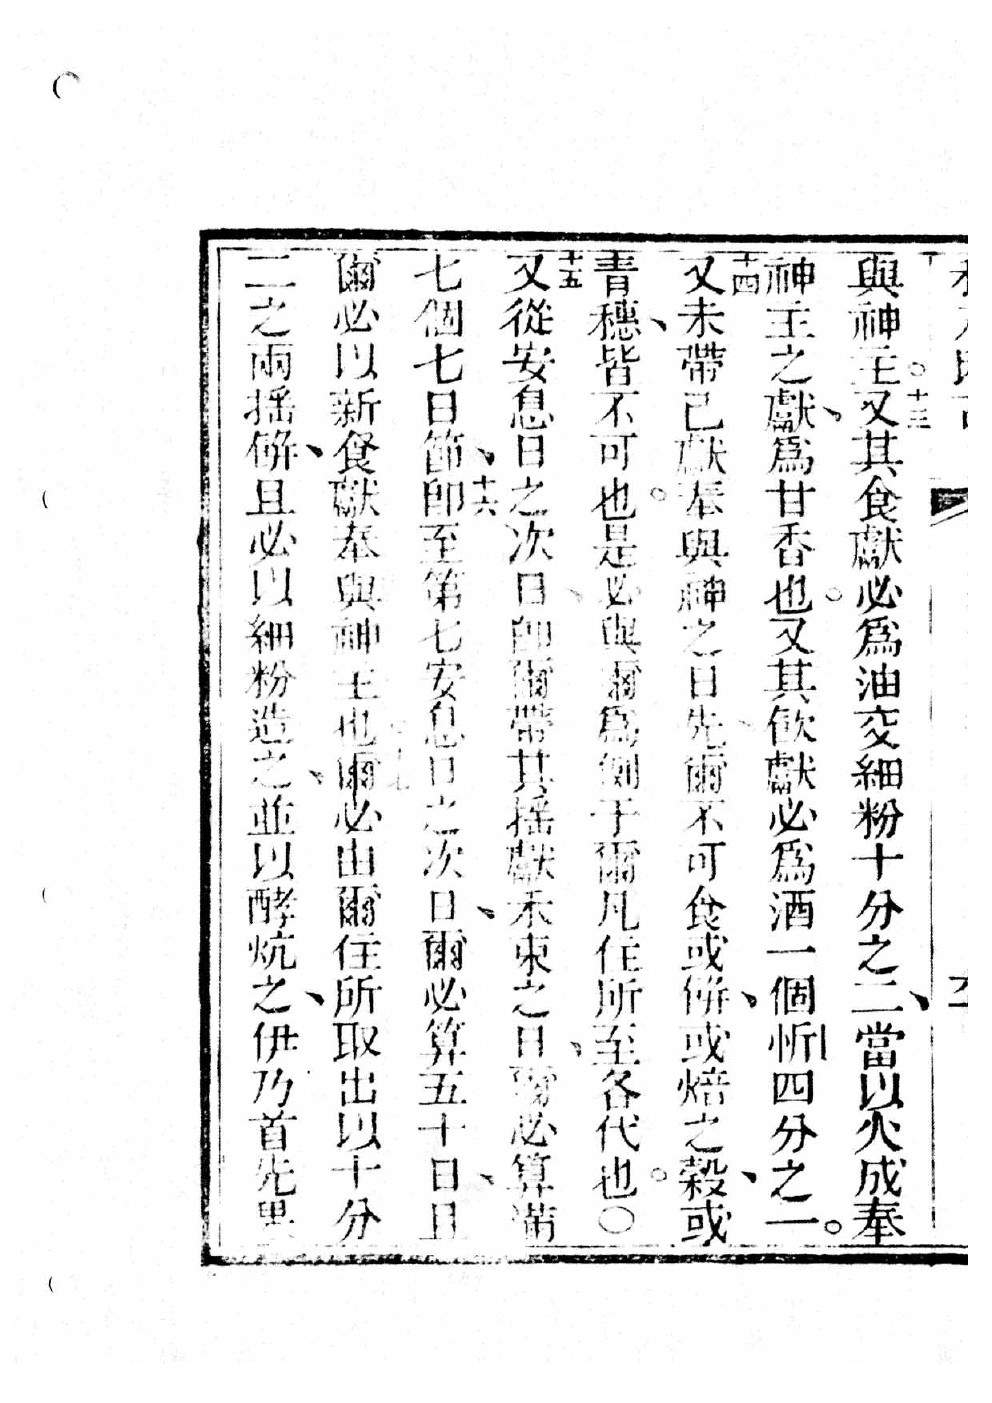 與神主。十三又其食獻必爲油交細粉十分之二、當以火成奉
神主之獻、爲甘香也。又其飲獻必爲酒一個忻四分之一。
十四又未帶己獻奉與神之日先爾不可食或餅、或焙之穀、或
青穗、皆不可也。是必與爾爲例于爾凡住所至各代也。○
十五又從安息日之次日、卽爾帶其搖獻禾束之日、爾必算滿
七個七日節、十六卽至第七安息日之次日、爾必算五十日、且
爾必以新食獻奉與神主也。十七爾必由爾住所取出以十分
二之兩搖餅、且必以細粉造之、並以酵炕之、伊乃首先果